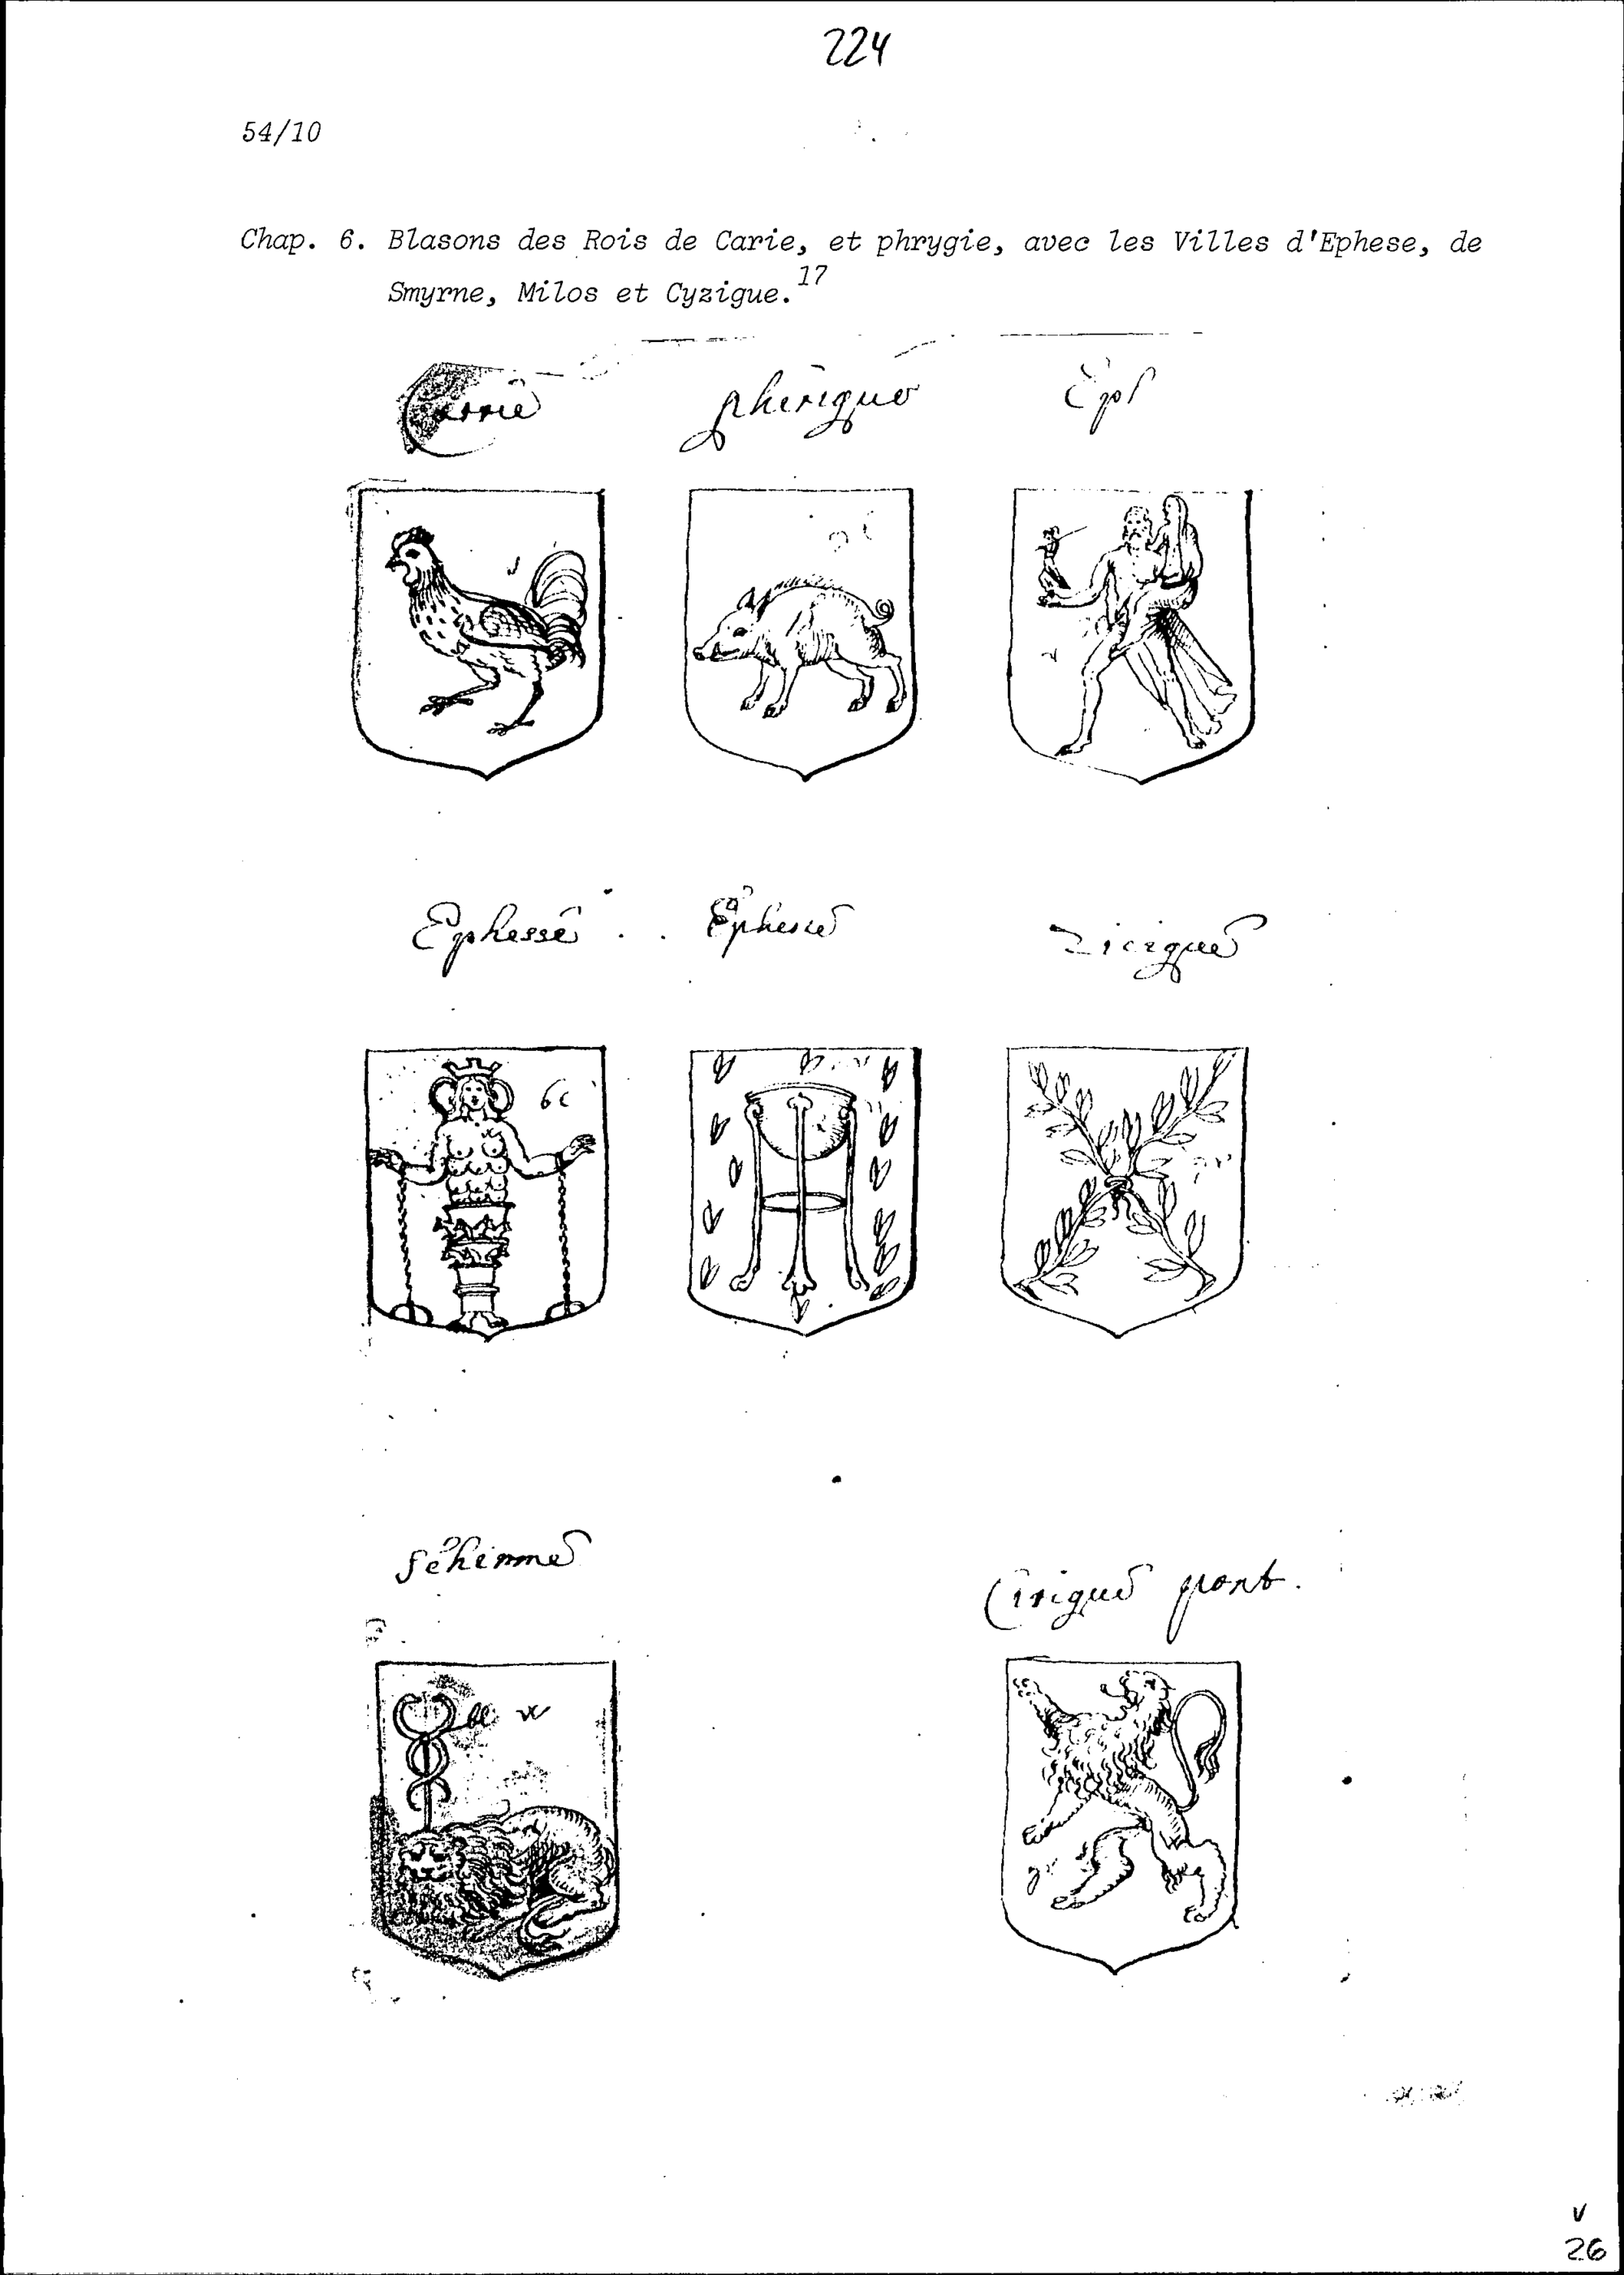 224
54/10
Chap. 6. Blasons des Rois de Carie, et phrygie, avec les Villes d'Ephese, de
Smyrne, Milos et Cyzigue.17
Carrie pherigue Epf
Ephesse Ephesse Zicigue
bc
bl
Cirigue pont.
v
26